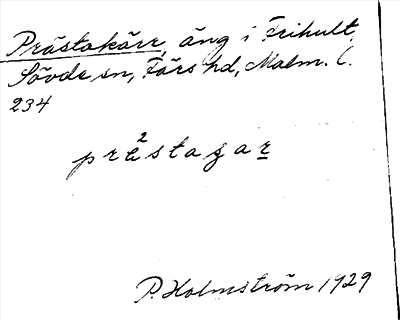 Prästakärr, äng i Frihult,
Sövde sn, Färs hd, Malm. l.
234
prè²stagar
P. Holmström 1929